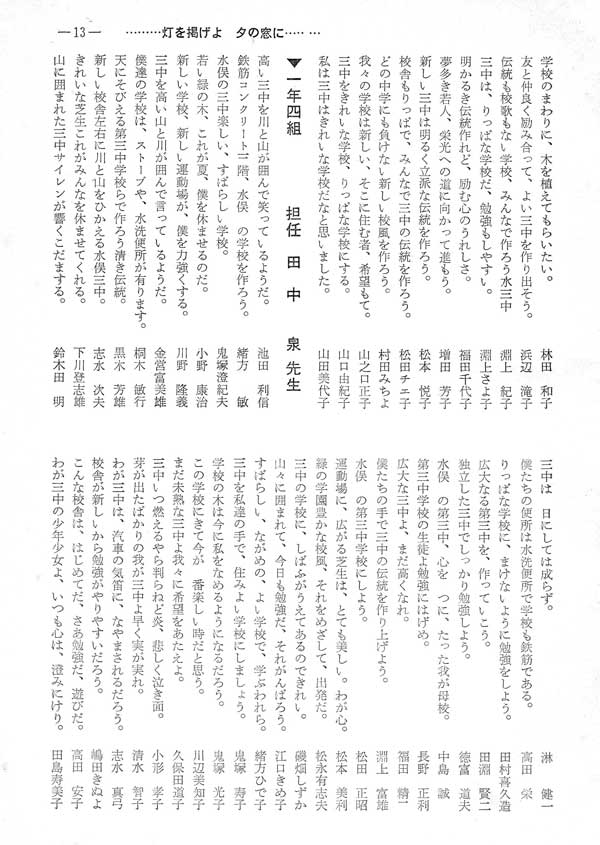 ―13― ………灯を掲げよ　夕の窓に……
学校のまわりに、木を植えてもらいたい。　林田　和子
友と仲良く励み合って、よい三中を作り出そう。　浜辺　滝子
伝統も校歌もない学校、みんなで作ろう水三中　淵上　紀子
三中は、りっぱな学校だ、勉強もしやすい。　淵上さよ子
明かるき伝統作れど、励む心のうれしさ。　福田千代子
夢多き若人、栄光への道に向かって進もう。　増田　芳子
新しい三中は明るく立派な伝統を作ろう。　松本　悦子
校舎もりっぱで、みんなで三中の伝統を作ろう。　松田チニ子
どの中学にも負けない新しい校風を作ろう。　村田みちよ
我々の学校は新しい、そこに住む者、希望もて。　山之口正子
三中をきれいな学校、りっぱな学校にする。　山口由紀子
私は三中はきれいな学校だなと思いました。　山田美代子
▼一年四組　　担任　田中　泉先生
高い三中を川と山が囲んで笑っているようだ。　池田　利信
鉄筋コンクリート三階、水俣　の学校を作ろう。　緒方　敏
水俣の三中楽しい、すばらしい学校。　鬼塚澄紀夫
若い緑の木、これが夏、僕を休ませるのだ。　小野　康治
新しい学校、新しい運動場が、僕を力強くする。　川野　隆義
三中を高い山と川が囲んで言っているようだ。　金営富美雄
僕達の学校は、ストーブや、水洗便所が有ります。　桐木　敏行
天にそびえる第三中学校らで作ろう清き伝統。　黒木　芳雄
新しい校舎左右に川と山をひかえる水俣三中。　志水　次夫
きれいな芝生これがみんなを休ませてくれる。　下川登志雄
山に囲まれた三中サイレンが響くこだまする。　鈴木田　明
三中は　日にしては成らず。　淋　健一
僕たちの便所は水洗便所で学校も鉄筋である。　高田　栄
りっぱな学校に、まけないように勉強をしよう。　田村喜久造
広大なる第三中を、作っていこう。　田淵　賢二
独立した三中でしっかり勉強しよう。　徳富　道夫
水俣　の第三中、心を　つに、たった我が母校。　中島　誠
第三中学校の生徒よ勉強にはげめ。　長野　正利
広大な三中よ、まだ高くなれ。　福田　精一
僕たちの手で三中の伝統を作り上げよう。　淵上　富雄
水俣　の第三中学校にしよう。　松田　正昭
運動場に、広がる芝生は、とても美しい。わが心。　松本　美利
緑の学園豊かな校風、それをめざして、出発だ。　松永有志夫
三中の学校に、しばふがうえてあるのできれい。　磯畑しずか
山々に囲まれて、今日も勉強だ、それがんばろう。　江口きめ子
すばらしい、ながめの、よい学校で、学ぶわれら。　緒方ひで子
三中を私達の手で、住みよい学校にしましょう。　鬼塚　寿子
学校の木は今に私をなめるようになるだろう。　鬼塚　光子
この学校にきて今が　番楽しい時だと思う。　川辺美知子
まだ未熟な三中よ我々に希望をあたえよ。　久保田道子
三中いつ燃えるやら判らねど炎、悲しく泣き面。　小形　孝子
芽が出たばかりの我が三中よ早く実が実れ。　清水　智子
わが三中は、汽車の気笛に、なやまされるだろう。　志水　真弓
校舎が新しいから勉強がやりやすいだろう。　嶋田きぬよ
こんな校舎は、はじめてだ、さあ勉強だ、遊びだ。　高田　安子
わが三中の少年少女よ、いつも心は、澄みにけり。　田島寿美子